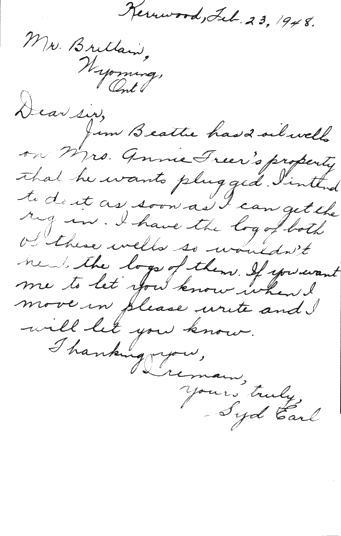 Kerrwood, Feb. 23, 1948.
Mr. Brittain,
Wyoming,
Ont.
Dear sir,
Jim Beattie has 2 oil wells
on Mrs. Annie Freer's property
that he wants plugged. I intend
to do it as soon as I can get the
rig in. I have the log of both
of these wells so wouldn't
need the logs of them. If you want
me to let you know when I
move in please write and I
will let you know.
Thanking you,
I remain,
Yours truly,
Syd Earl